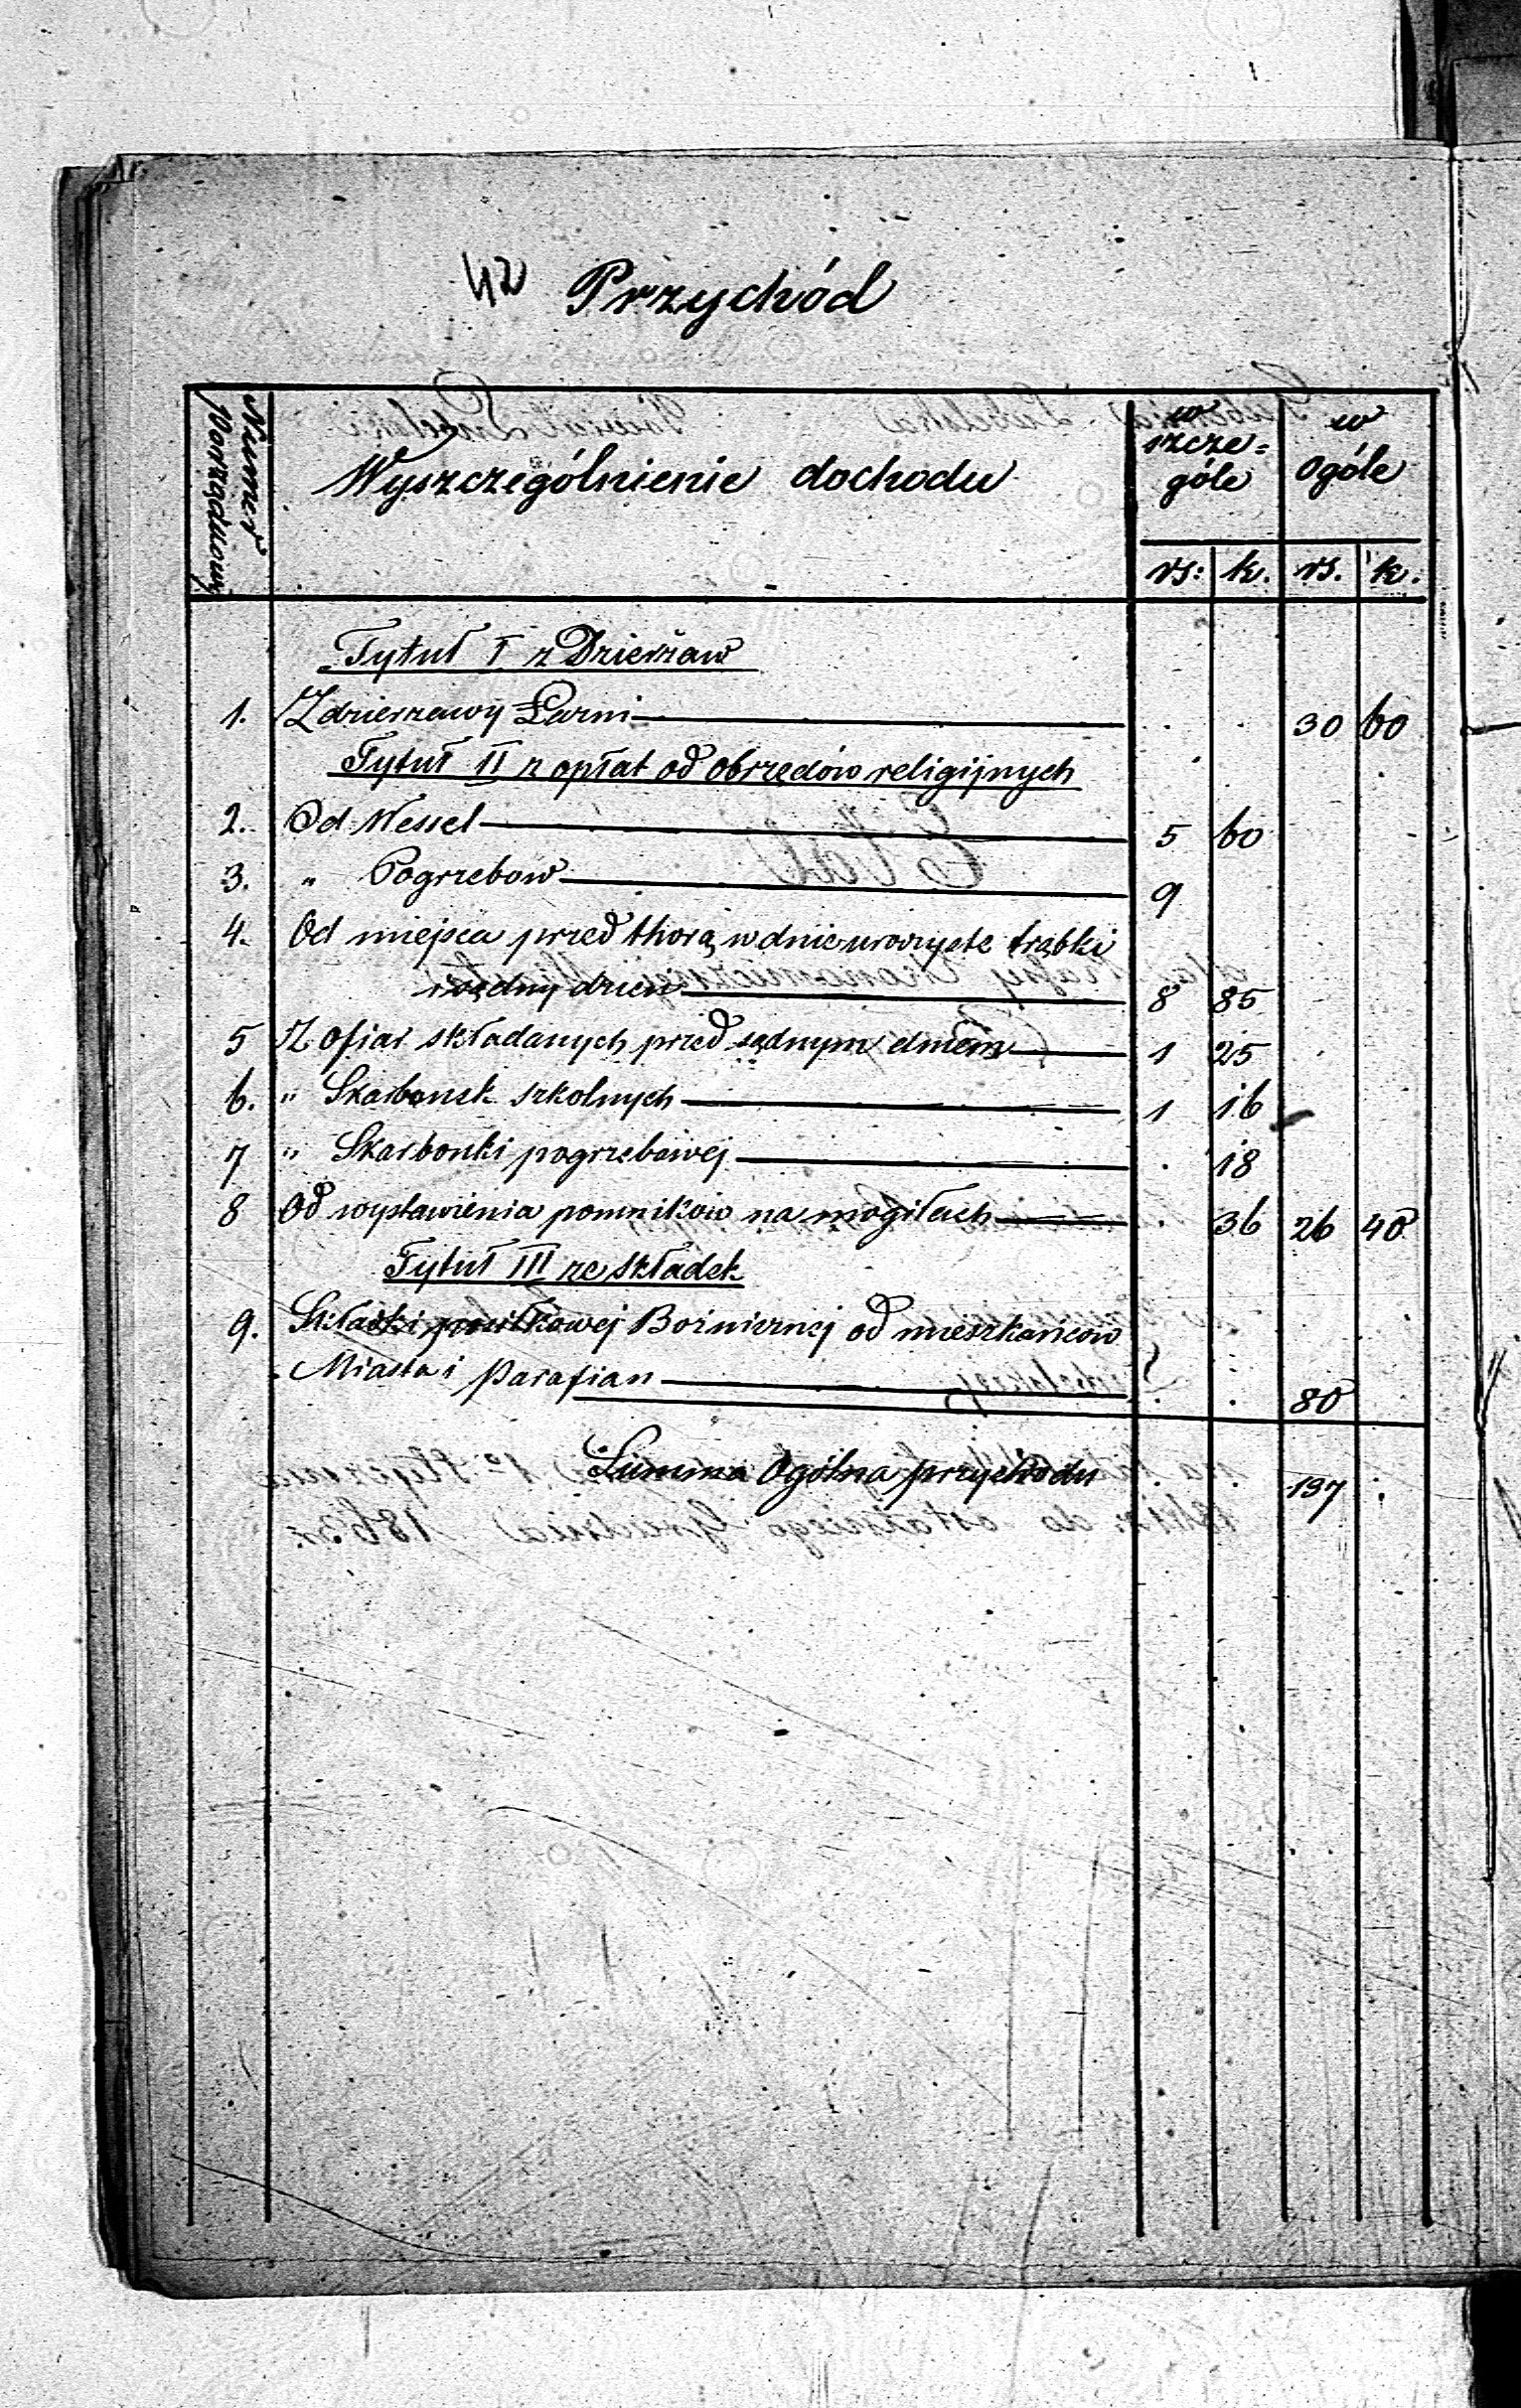 42 Przychód
Numer Porządkowy
Wyszczególnienie dochodu
w szcze=
góle
w
ogóle
rs: k. rs. k.
Tytuł I z Dzierżaw
1. Z dzierzawy Łazni 30 60
Tytuł II z opłat od obrzędów religijnych
2. Od Wessel 5 60
3. " Pogrzebow 9
4. Od miejsca przed thorą, w dnie uroczyste trąbki
i sądny dzien 8 85
5 Z ofiar składanych przed sądnym dniem 1 25
6. " Skarbonek szkolnych 1 16
7 " Skarbonki pogrzebowej . 18
8 Od wystawienia pomników na mogiłach . 36 26 40
Tytuł III ze składek
9. Składki posiłkowej Bożniczej od mieszkańcow
Miasta i Parafian . . 80
Summa Ogólna przychodu 137 .